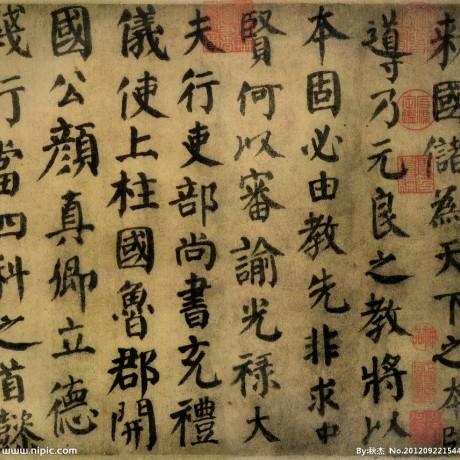 敕國儲為天下之本師
導乃元良之教將以
本固必由教先非求忠
賢何以審諭光祿大
夫行吏部尚書充禮
儀使上柱國魯郡開
國公顏真卿立德
踐行當四科之首懿
www.nipic.com
By:秋杰 No.201209221544